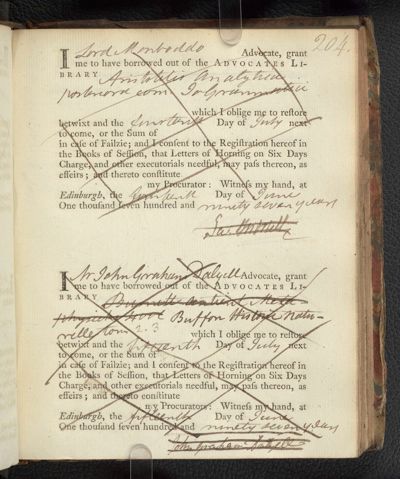 204.
I Lord Monboddo Advocate, grant
me to have borrowed out of the ADVOCATES LI-
BRARY Aristotelis Analytica
posteriora com. Jo Grammatici
which I oblige me to restore
betwixt and the Day of July next
to come, or the Sum of
in case of Failzie; and I consent to the Registration hereof in
the Books of Session, that Letters of Horning on Six Days
Charge, and other executorials needful, may pass thereon, as
effeirs; and thereto constitute
my Procurator: Witness my hand, at
Edinburgh, the Day of June
One thousand seven hundred and ninety seven years
I Mr John Graham Dalyell Advocate, grant
me to have borrowed out of the ADVOCATES LI-
BRARY
Buffon Histoire Natu-
relle tom 2. 3 which I oblige me to restore
betwixt and the fifteenth Day of July next
to come, or the Sum of
in case of Failzie; and I consent to the Registration hereof in
the Books of Session, that Letters of Horning on Six Days
Charge, and other executorials needful, may pass thereon, as
effeirs; and thereto constitute
my Procurator: Witness my hand, at
Edinburgh, the fifteenth Day of June
One thousand seven hundred and ninety seven years
John Graham Dalyell